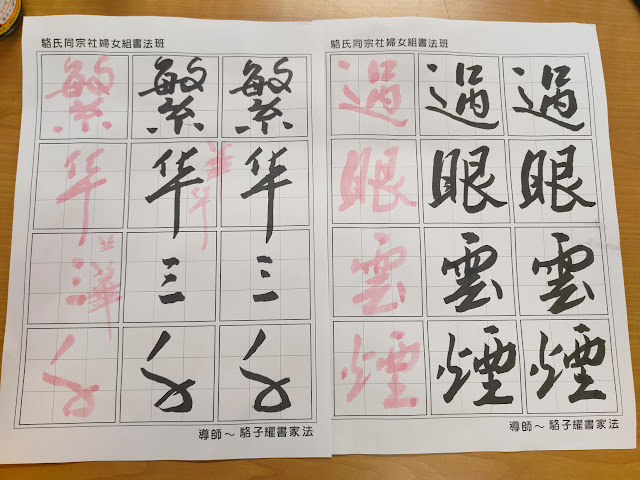 駱氏同宗社婦女組書法班
繁 繁 繁
华 华 华
三 三 三
導師～ 駱子耀書家法
駱氏同宗社婦女組書法班
過 過 過
眼 眼 眼
雲 雲 雲
煙 煙 煙
導師～ 駱子耀書家法